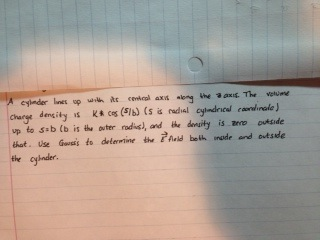 A cylinder lines up with its central axis along the z axis. The volume
charge density is K * cos (s/b) (s is radial cylindrical coordinate)
up to s=b (b is the outer radius), and the density is zero outside
that. Use Gauss's to determine the E field both inside and outside
the cylinder.